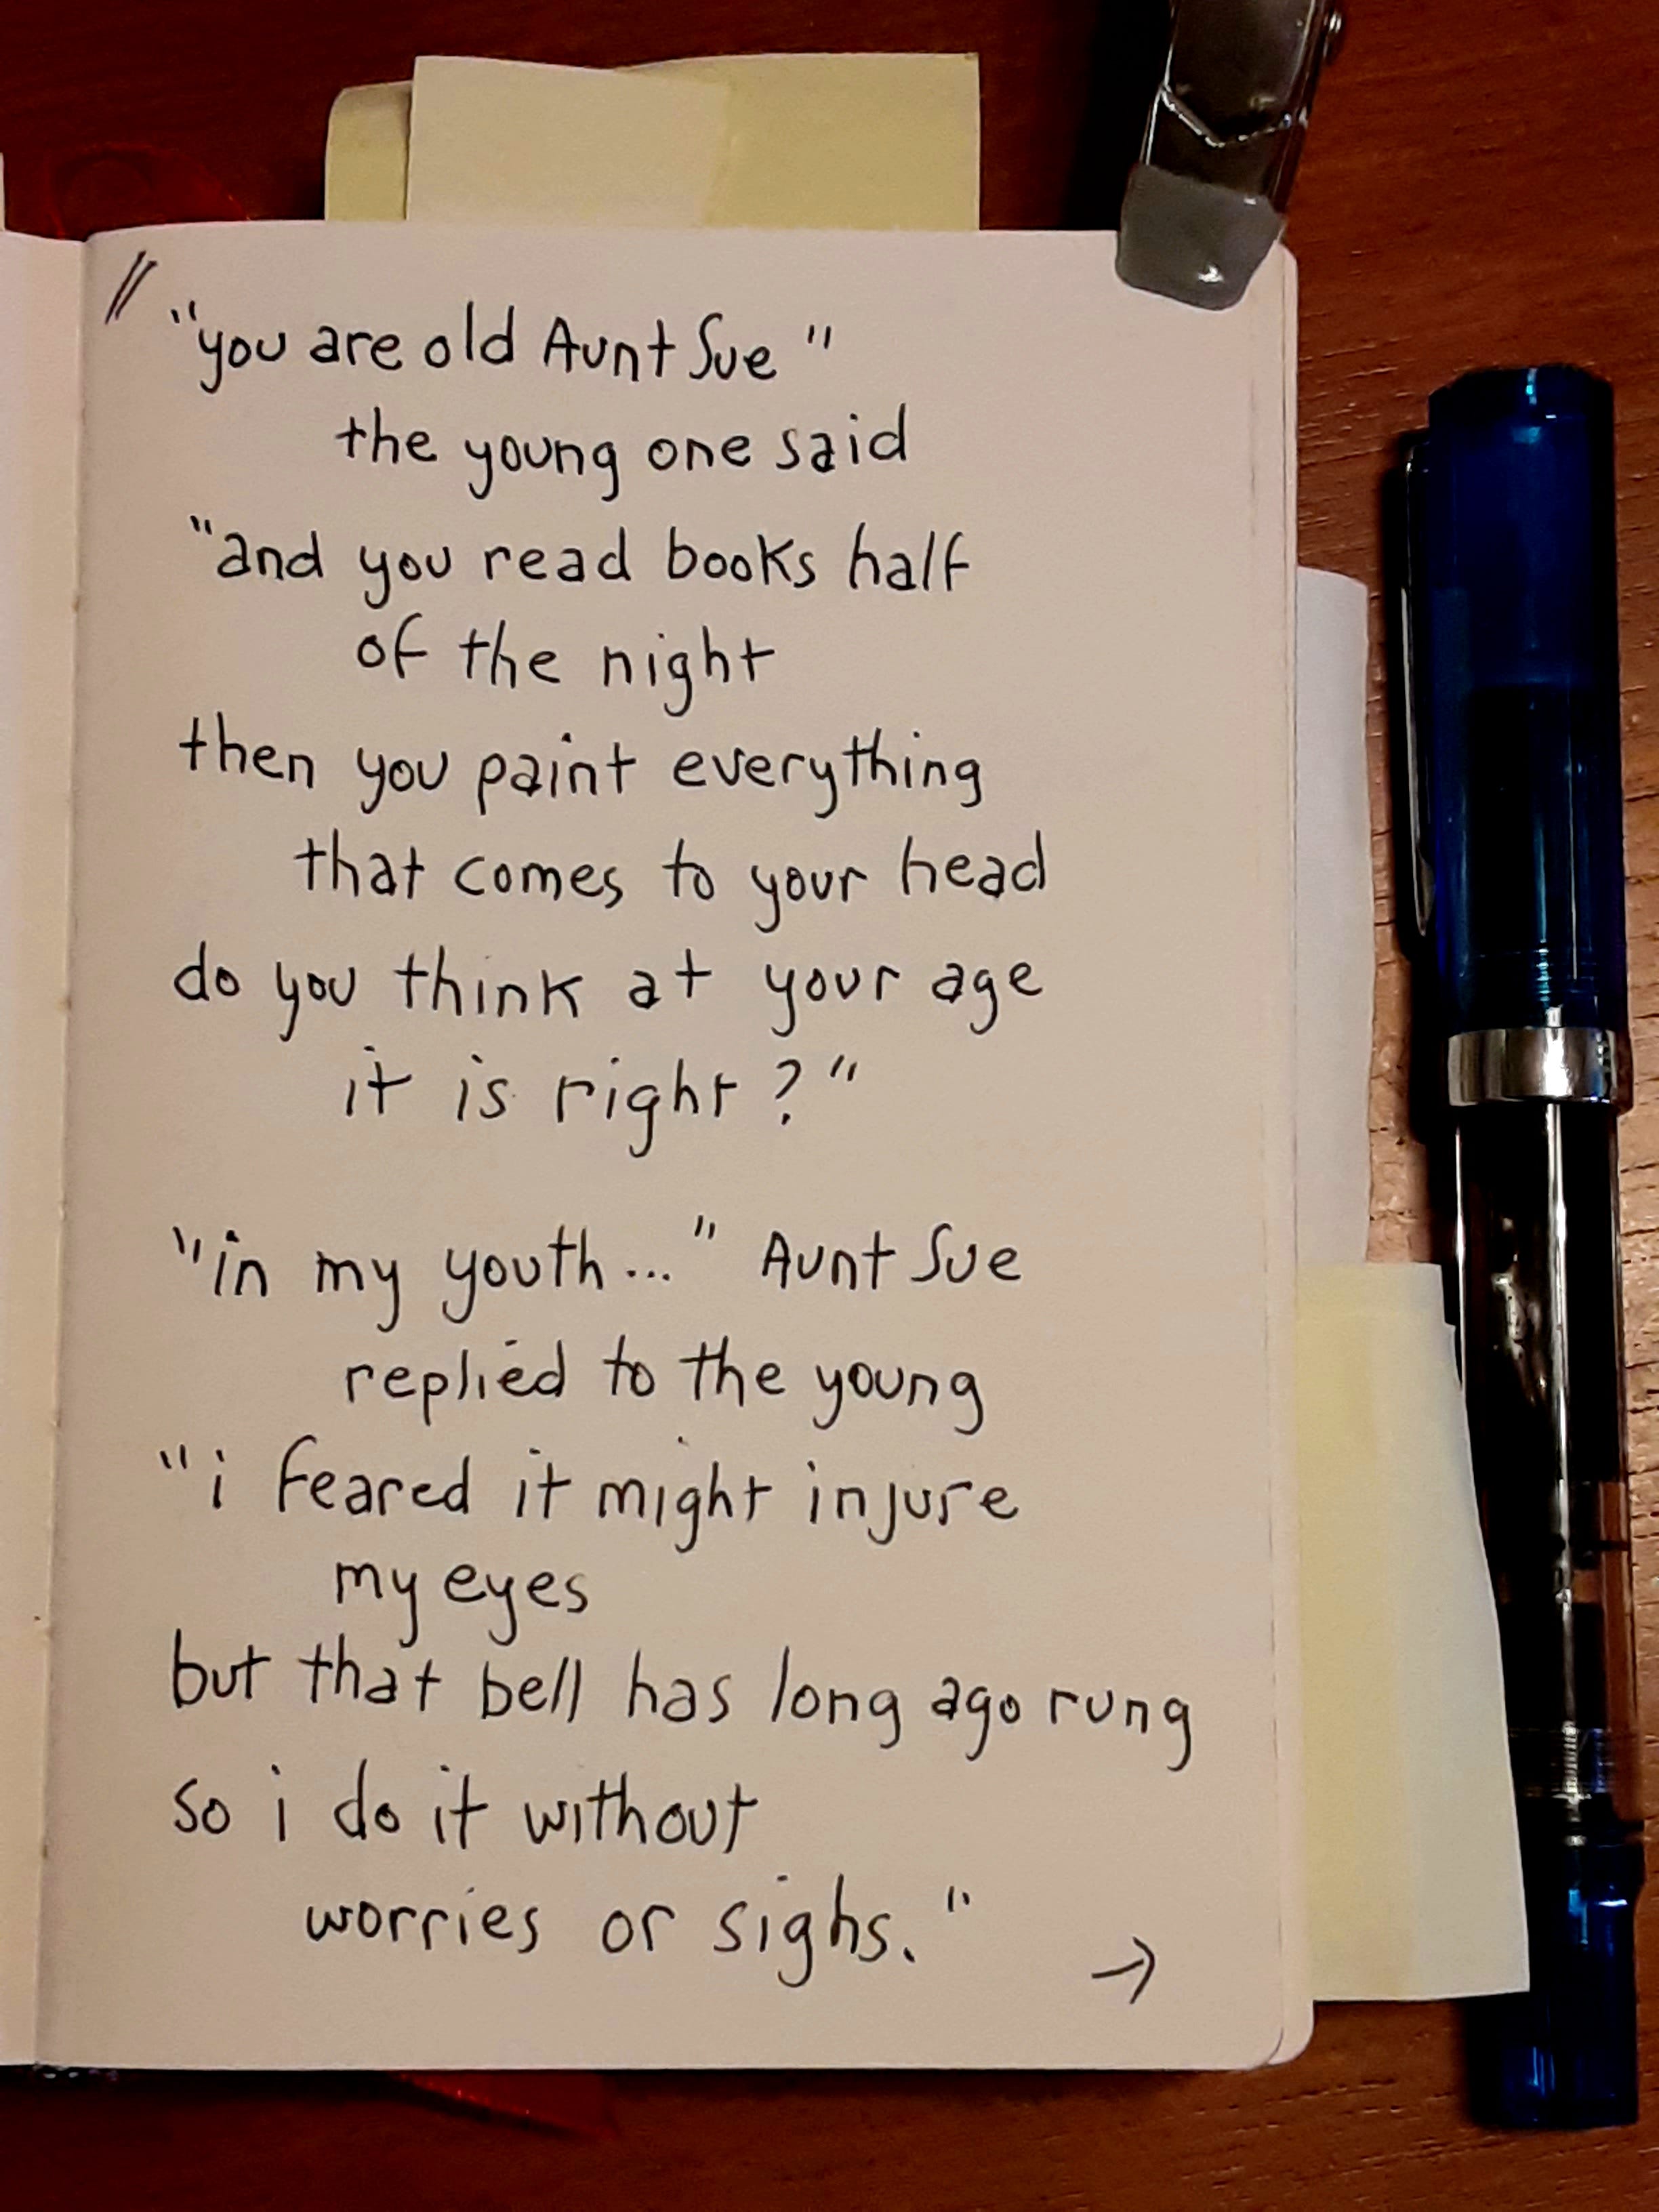 "you are old Aunt Sue"
the young one said
"and you read books half
of the night
then you paint everything
that comes to your head
do you think at your age
it is right?"
"in my youth..." Aunt Sue
replied to the young
"i feared it might injure
my eyes
but that bell has long ago rung
so i do it without
worries or sighs."
→